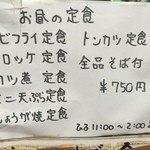 お昼の定食
ビフライ定食
ロッケ定食
カツ煮定食
ミニ天ぷら定食
しょうが焼定食
トンカツ定食
全品そば付
¥750円
11:00〜2:00